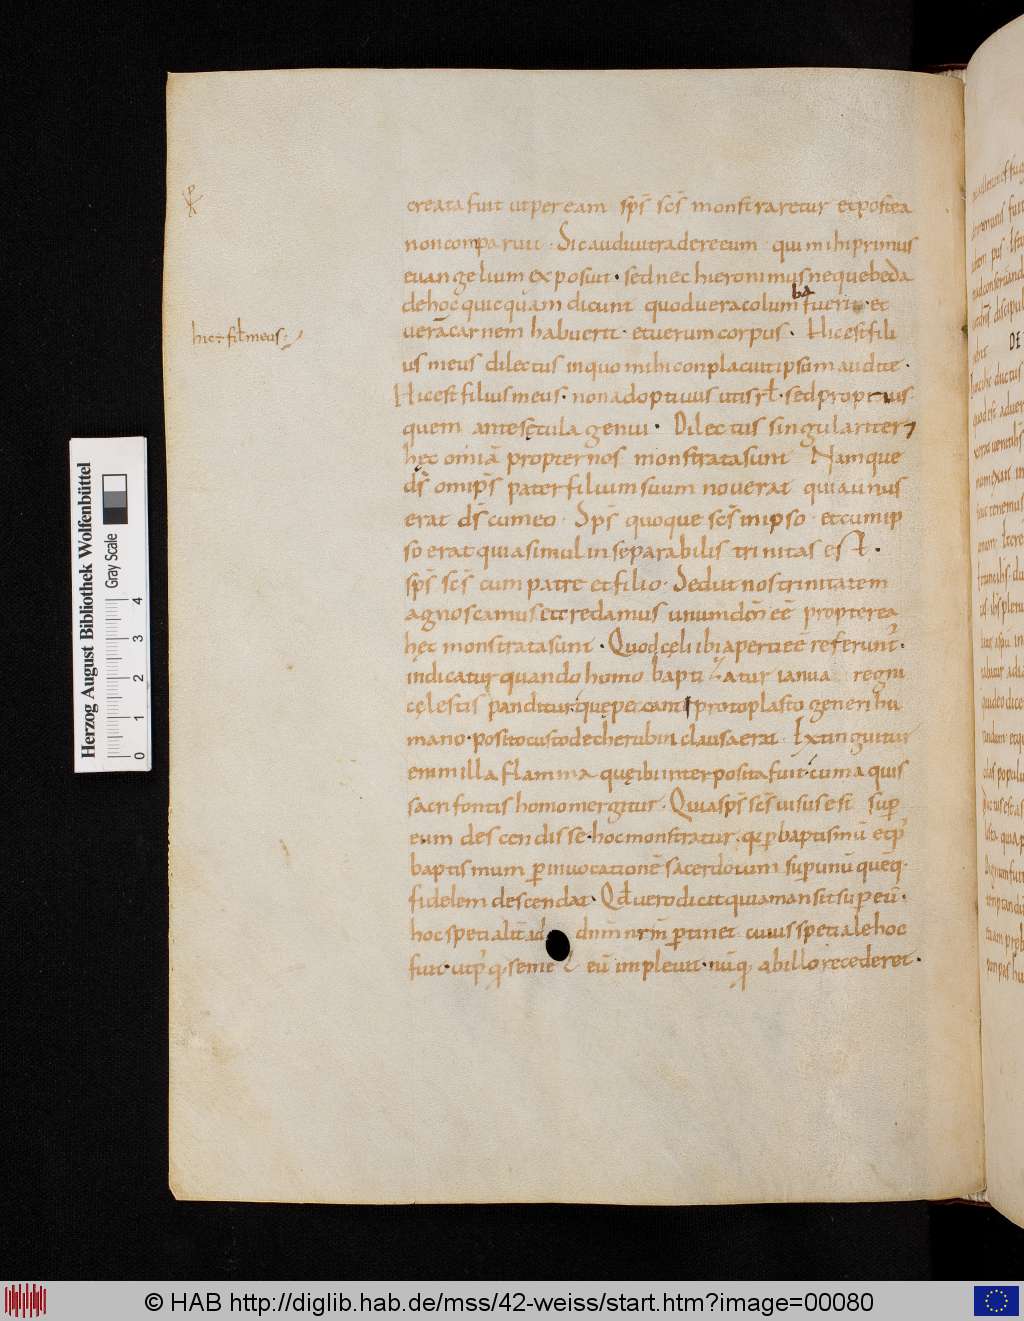 creata fuit ut peream sp̄s sc̄s monstraretur et postea
non comparuit · Sic audivi tradere eum · qui mihi primus
euangelium exposuit · sed nec hieronimus neque beda
ba
de hoc quicquam dicunt quod uera columb fuerit · et
uerā carnem habuerit · et uerum corpus · Hic est fili
hic ÷ fil̄ meus ·
us meus dilectus in quo mihi conplacuit ipsum audite ·
Hic est filius meus · non adoptiuus ut isrł · sed proprius
quem ante sęcula genui · Dilectus singulariter
hęc omia propter nos monstrata sunt Namque
dś omīps pater filium suum nouerat quia unus
erat dś cum eo · Sp̄s quoque sc̄s in ipso · et cum ip
so erat quia simul inseparabilis trinitas est ·
sp̄s sc̄s cum patre et filio · Sed ut nos trinitatem
agnoscamus et credamus unum dm̄ eē propterea
hęc monstrata sunt · Quod cęli ibi aperti eē referunt̄ ·
indicatur quando homo baptizatur ianua regni
cęlestis panditur · quę peccanti protoplasto generi hu
mano · posito custode cherubin clausa erat · Extinguitur
enim illa flamma quę ibi interposita fuit · cum aquis
sacri fontis homo mergitur · Quia sp̄s sc̄s uisus est sup̄
eum descendisse · hoc monstratur · q̄ p̄ baptismū et p̄
baptismum p̄ inuocationē sacerdotum sup̄ unū quēq̧
fidelem descendat · Qđ uero dicit quia mansit sup̄ eū ·
hoc spetialit̄ ad dn̄m nr̄m p̄tinet cuius spetiale hoc
fuit · ut p̄q̧ semel eū impleuit · nūq̧ ab illo recederet ·
DE
Herzog August Bibliothek Wolfenbüttel
Gray Scale
0 1 2 3 4
© HAB http://diglib.hab.de/mss/42-weiss/start.htm?image=00080